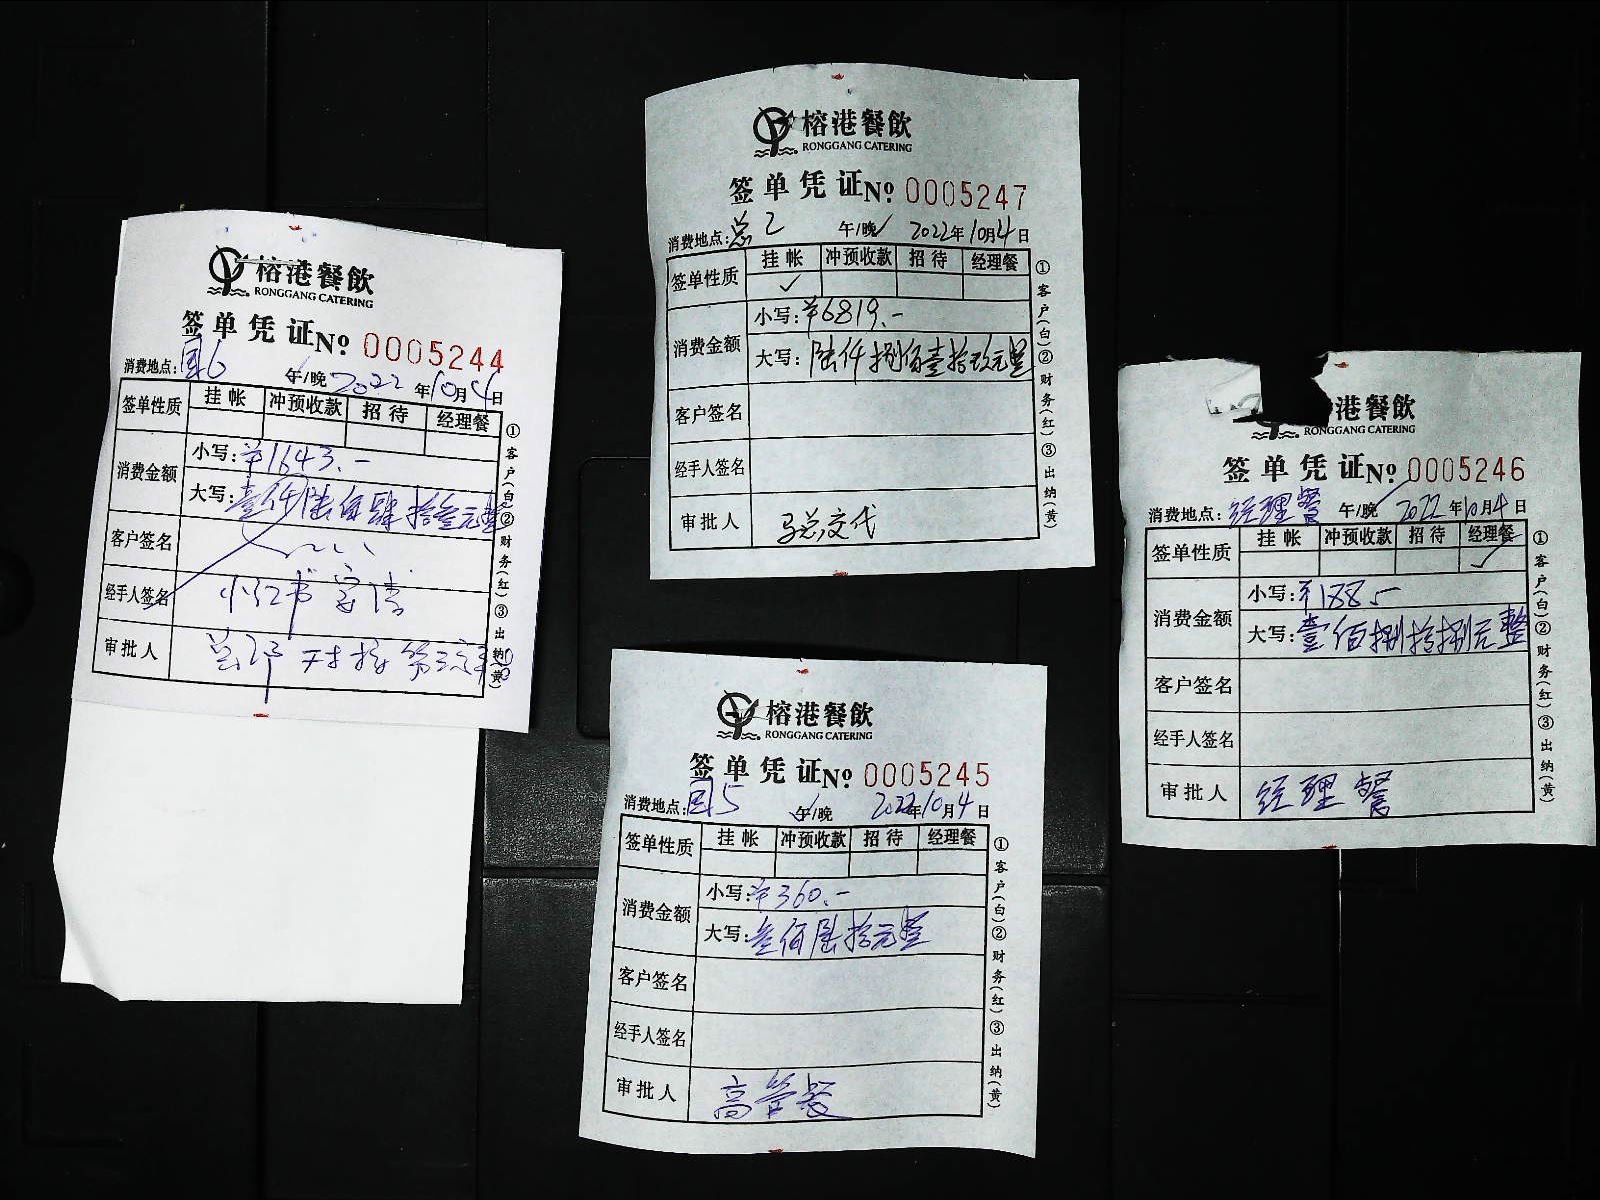 榕港餐飲
RONGGANG CATERING
签单凭证 No 0005244
消费地点: 国6 午/晚 2022年10月4日
签单性质 挂帐 冲预收款 招待 经理餐
消费金额 小写: ¥1643.-
大写: 壹仟陆佰肆拾叁元整
客户签名
经手人签名
审批人
①客户(白)②财务(红)③出纳(黄)
榕港餐飲
RONGGANG CATERING
签单凭证 No 0005247
消费地点: 总2 午/晚 2022年10月4日
签单性质 挂帐 冲预收款 招待 经理餐
消费金额 小写: ¥6819.-
大写: 陆仟捌佰壹拾玖元整
客户签名
经手人签名
审批人 马总交代
①客户(白)②财务(红)③出纳(黄)
榕港餐飲
RONGGANG CATERING
签单凭证 No 0005245
消费地点: 国5 午/晚 2022年10月4日
签单性质 挂帐 冲预收款 招待 经理餐
消费金额 小写: ¥360.-
大写: 叁佰陆拾元整
客户签名
经手人签名
审批人 高管餐
①客户(白)②财务(红)③出纳(黄)
港餐飲
RONGGANG CATERING
签单凭证 No 0005246
消费地点: 经理餐 午/晚 2022年10月4日
签单性质 挂帐 冲预收款 招待 经理餐
消费金额 小写: ¥188.-
大写: 壹佰捌拾捌元整
客户签名
经手人签名
审批人 经理餐
①客户(白)②财务(红)③出纳(黄)